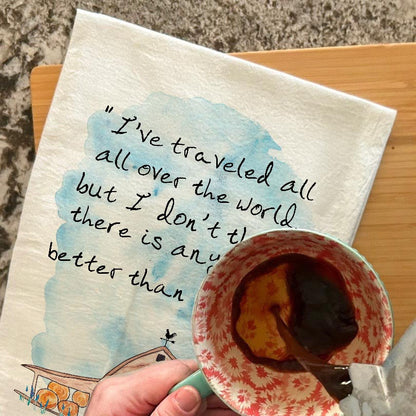 "I've traveled all
all over the world
but I don't
there is
better than